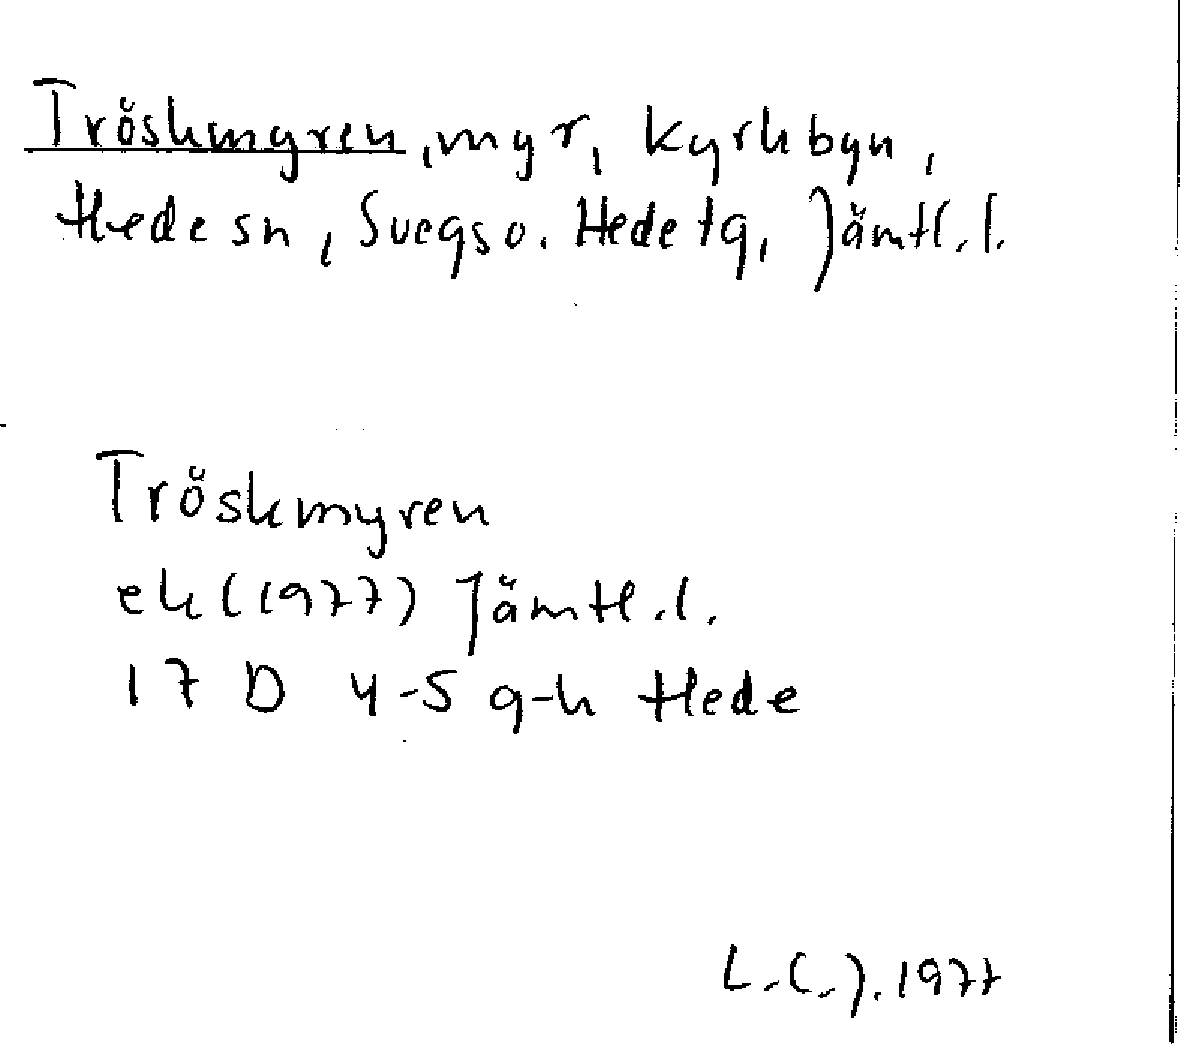 Tröskmyren, myr, Kyrkbyn,
Hede sn, Svegs o. Hede tg, Jämtl. l.
Tröskmyren
ek (1977) Jämtl. l.
17 D 4-5 g-h Hede
L.C.J. 1977